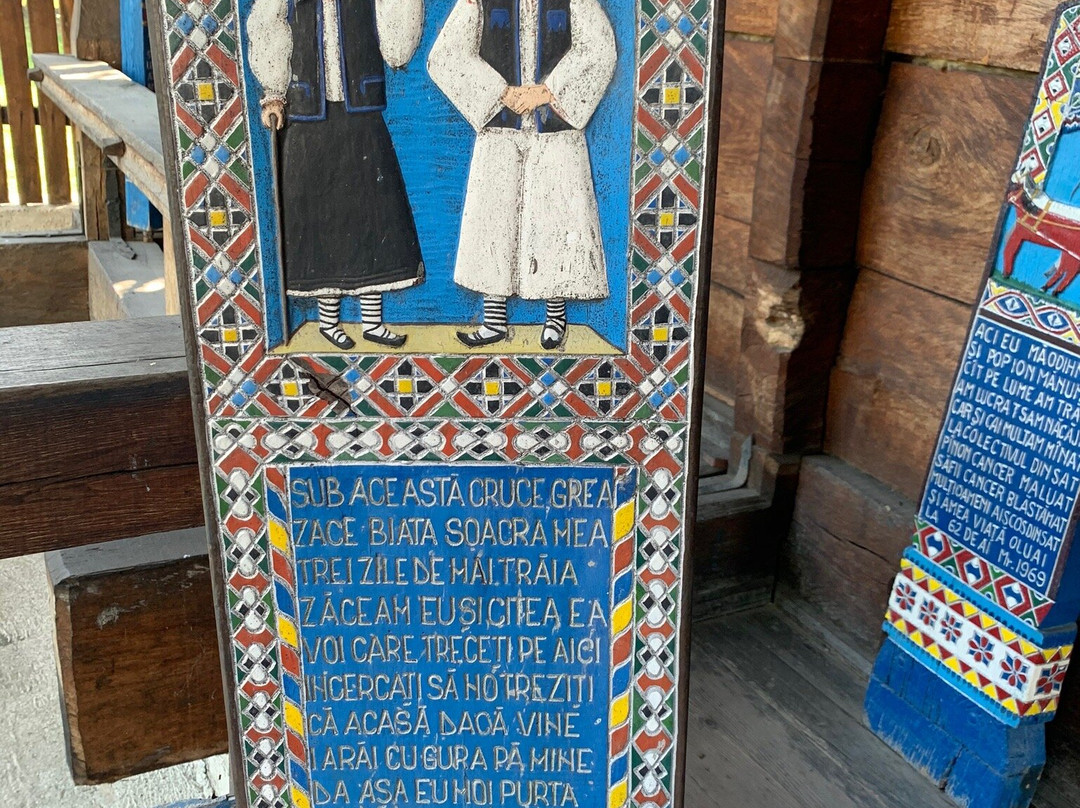 SUB ACEASTĂ CRUCE GREA
ZACE BIATA SOACRA MEA
TREI ZILE DE MĂI TRĂIA
ZĂCEAM EU ȘI CITEA EA
VOI CARE TRECEȚI PE AICI
INCERCAȚI SĂ NO TREZIȚI
CĂ ACASĂ DACĂ VINE
IARĂI CU GURA PĂ MINE
DA AȘA EU MOI PURTA
ACI EU MĂ ODIHN
ȘI POP ION MĂNU
CÎT PE LUME AM TRĂ
AM LUCRAT ȘAM NĂCĂJ
CAR ȘI CAI MULT AM MÎNAT
LA COLECTIVUL DIN SAT
PINON CANCER MALUAT
SĂFII CANCER BLĂSTĂMAT
MULT OAMENI AI SCOS DIN SAT
ȘI AMEA VIAȚĂ O LUAI
LA 62 DE AI M. 1969